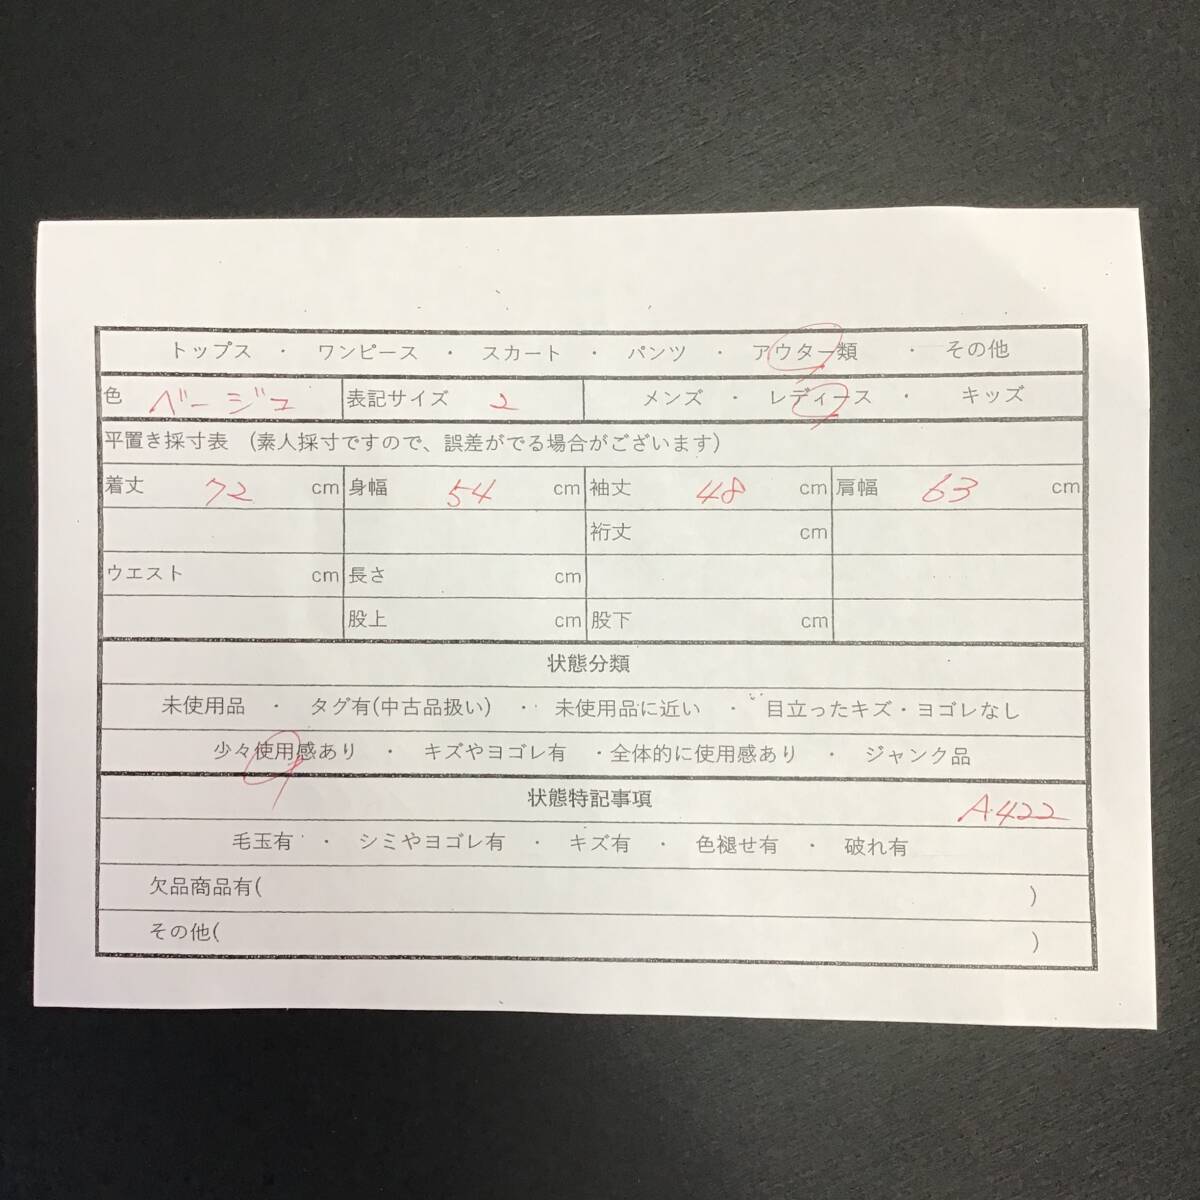 トップス ・ ワンピース ・ スカート ・ パンツ ・ アウター類 ・ その他
色 ベージュ 表記サイズ 2 メンズ ・ レディース ・ キッズ
平置き採寸表 (素人採寸ですので、誤差がでる場合がございます)
着丈 72 cm 身幅 54 cm 袖丈 48 cm 肩幅 63 cm
裄丈 cm
ウエスト cm 長さ cm
股上 cm 股下 cm
状態分類
未使用品 ・ タグ有(中古品扱い) ・ 未使用品に近い ・ 目立ったキズ・ヨゴレなし
少々使用感あり ・ キズやヨゴレ有 ・全体的に使用感あり ・ ジャンク品
状態特記事項 A422
毛玉有 ・ シミやヨゴレ有 ・ キズ有 ・ 色褪せ有 ・ 破れ有
欠品商品有( )
その他( )